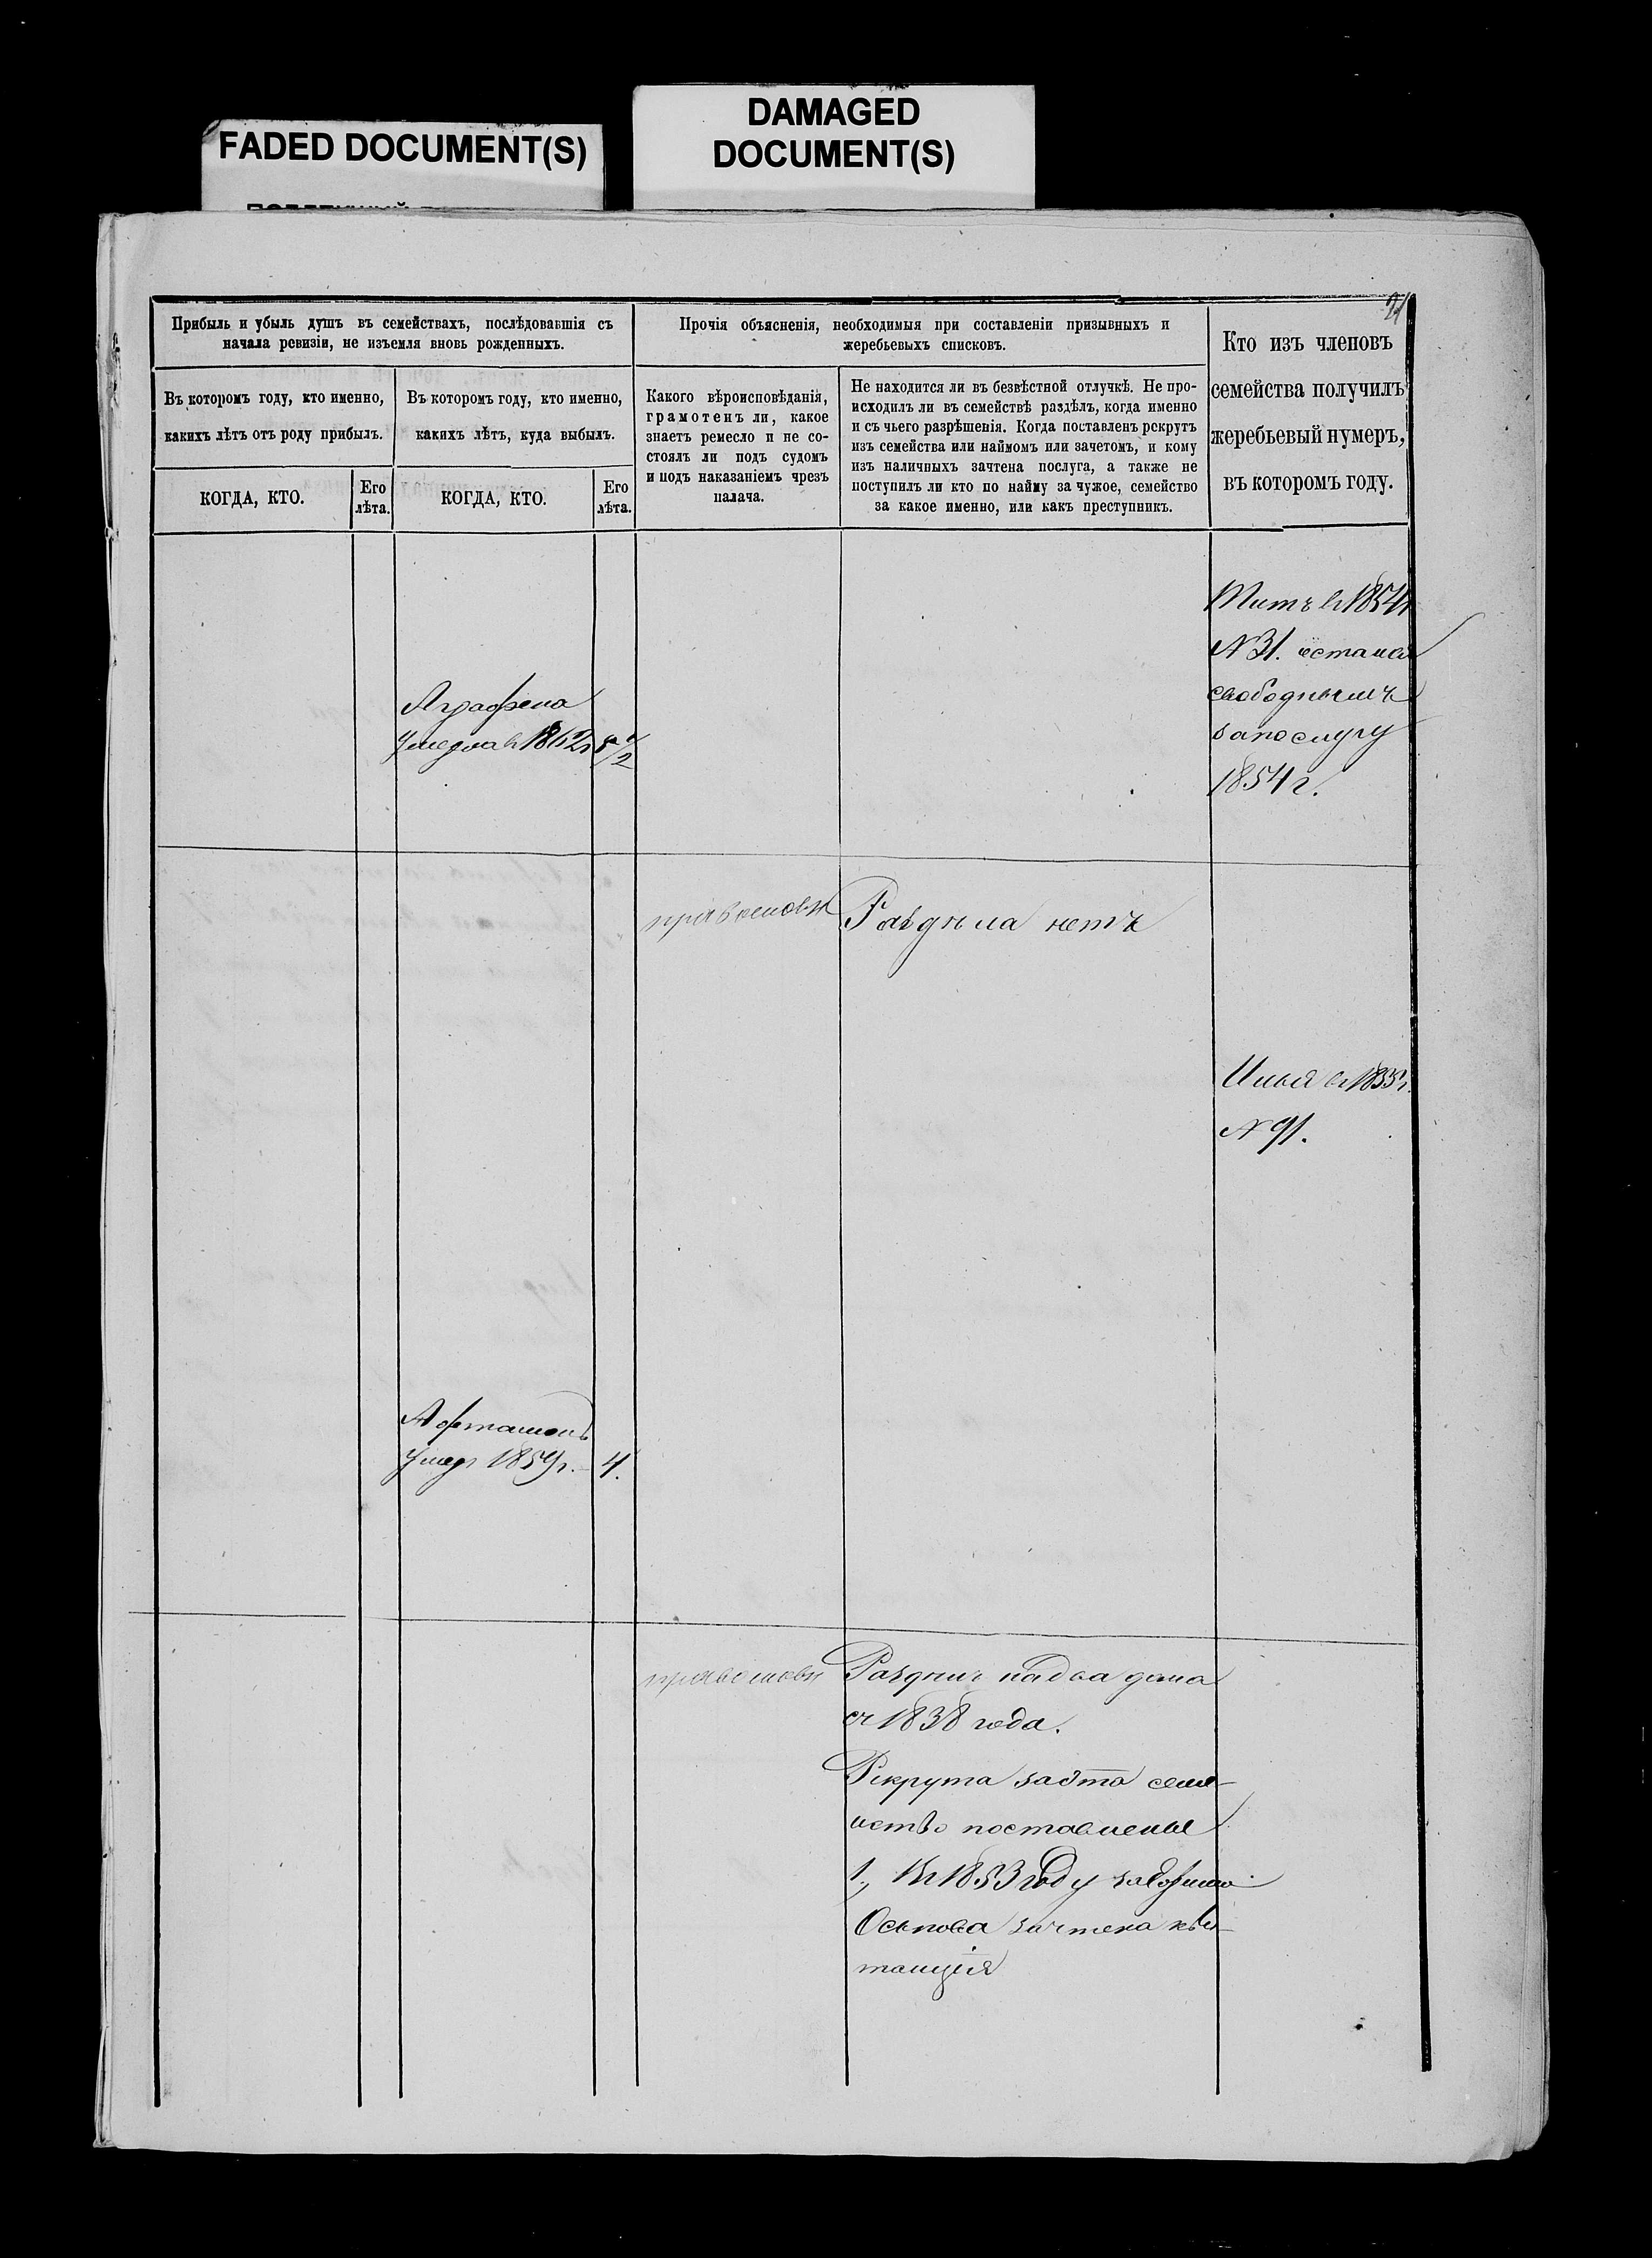 FADED DOCUMENT(S)
DAMAGED
DOCUMENT(S)
21
Прибыль и убыль душъ въ семействахъ, послѣдовавшія съ
начала ревизіи, не изъемля вновь рожденныхъ.
Прочія объясненія, необходимыя при составленіи призывныхъ и
жеребьевыхъ списковъ.
Кто изъ членовъ
семейства получилъ
жеребьевый нумеръ,
въ которомъ году.
Въ которомъ году, кто именно,
какихъ лѣтъ отъ роду прибылъ.
Въ которомъ году, кто именно,
какихъ лѣтъ, куда выбылъ.
Какого вѣроисповѣданія,
грамотенъ ли, какое
знаетъ ремесло и не со-
стоялъ ли подъ судомъ
и подъ наказаніемъ чрезъ
палача.
Не находится ли въ безвѣстной отлучкѣ. Не про-
исходилъ ли въ семействѣ раздѣлъ, когда именно
и съ чьего разрѣшенія. Когда поставленъ рекрутъ
изъ семейства или наймомъ или зачетомъ, и кому
изъ наличныхъ зачтена послуга, а также не
поступилъ ли кто по найму за чужое, семейство
за какое именно, или какъ преступникъ.
КОГДА, КТО.
Его
лѣта.
КОГДА, КТО.
Его
лѣта.
Титъ въ 1854г
N 31. остался
свободнымъ
за послугу
1854 г.
Аграфена
умерла в 1862г
православн
Раздѣла нетъ
Илья въ 1855г.
N 91.
умеръ 1859г. 4.
православн
Раздѣлъ на два дома
съ 1838 года.
Рекрута за это семе-
йство поставлены
1., Въ 1853 году за
Осипова зачтена кви-
танція